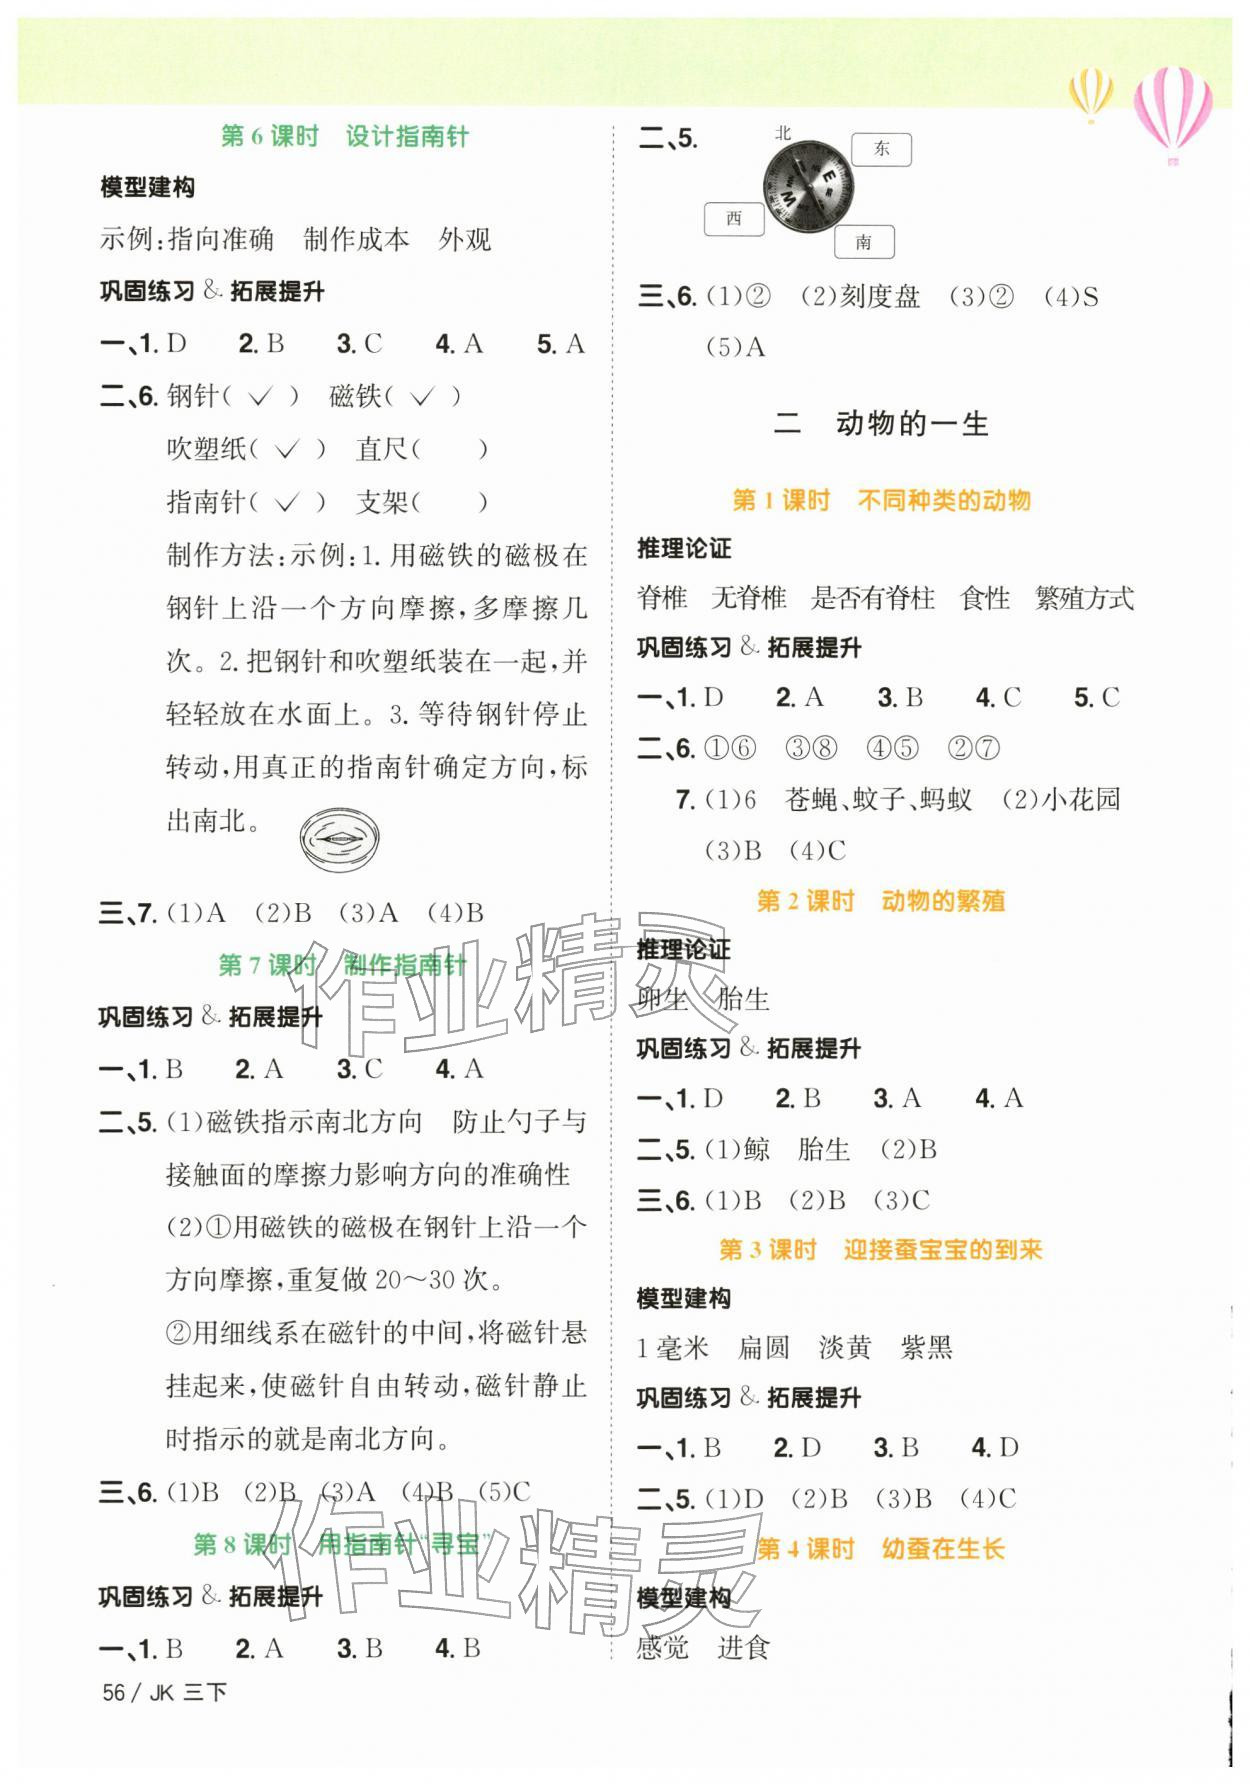 第 6 课时　设计指南针
模型建构
示例:指向准确　制作成本　外观
巩固练习 & 拓展提升
一、1. D　2. B　3. C　4. A　5. A
二、6. 钢针( ✓ )　磁铁( ✓ )
吹塑纸( ✓ )　直尺(　　)
指南针( ✓ )　支架(　　)
制作方法:示例:1. 用磁铁的磁极在
钢针上沿一个方向摩擦,多摩擦几
次。2. 把钢针和吹塑纸装在一起,并
轻轻放在水面上。3. 等待钢针停止
转动,用真正的指南针确定方向,标
出南北。
三、7. (1)A　(2)B　(3)A　(4)B
第 7 课时　制作指南针
巩固练习 & 拓展提升
一、1. B　2. A　3. C　4. A
二、5. (1)磁铁指示南北方向　防止勺子与
接触面的摩擦力影响方向的准确性
(2)①用磁铁的磁极在钢针上沿一个
方向摩擦,重复做 20～30 次。
②用细线系在磁针的中间,将磁针悬
挂起来,使磁针自由转动,磁针静止
时指示的就是南北方向。
三、6. (1)B　(2)B　(3)A　(4)B　(5)C
第 8 课时　用指南针“寻宝”
巩固练习 & 拓展提升
一、1. B　2. A　3. B　4. B
56 / JK 三下
二、5.
北
东
E
W
西
南
三、6. (1)②　(2)刻度盘　(3)②　(4)S
(5)A
二　动物的一生
第 1 课时　不同种类的动物
推理论证
脊椎　无脊椎　是否有脊柱　食性　繁殖方式
巩固练习 & 拓展提升
一、1. D　2. A　3. B　4. C　5. C
二、6. ①⑥　③⑧　④⑤　②⑦
7. (1)6　苍蝇、蚊子、蚂蚁　(2)小花园
(3)B　(4)C
第 2 课时　动物的繁殖
推理论证
卵生　胎生
巩固练习 & 拓展提升
一、1. D　2. B　3. A　4. A
二、5. (1)鲸　胎生　(2)B
三、6. (1)B　(2)B　(3)C
第 3 课时　迎接蚕宝宝的到来
模型建构
1 毫米　扁圆　淡黄　紫黑
巩固练习 & 拓展提升
一、1. B　2. D　3. B　4. D
二、5. (1)D　(2)B　(3)B　(4)C
第 4 课时　幼蚕在生长
模型建构
感觉　进食
作业精灵
作业精灵